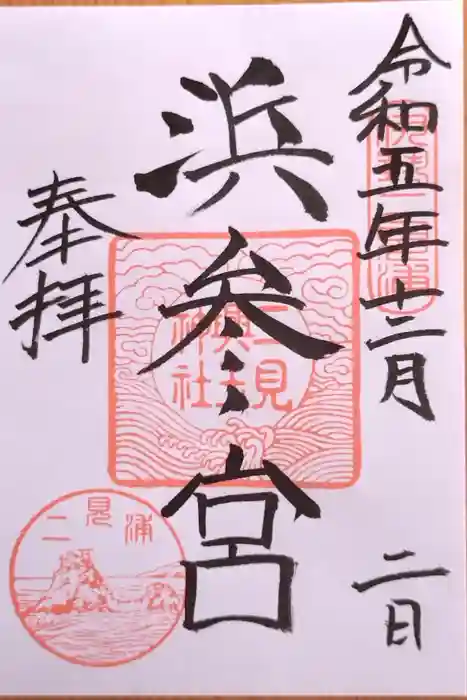 令和五年十二月二日
浜参宮
奉拝
二見興玉神社
二見浦